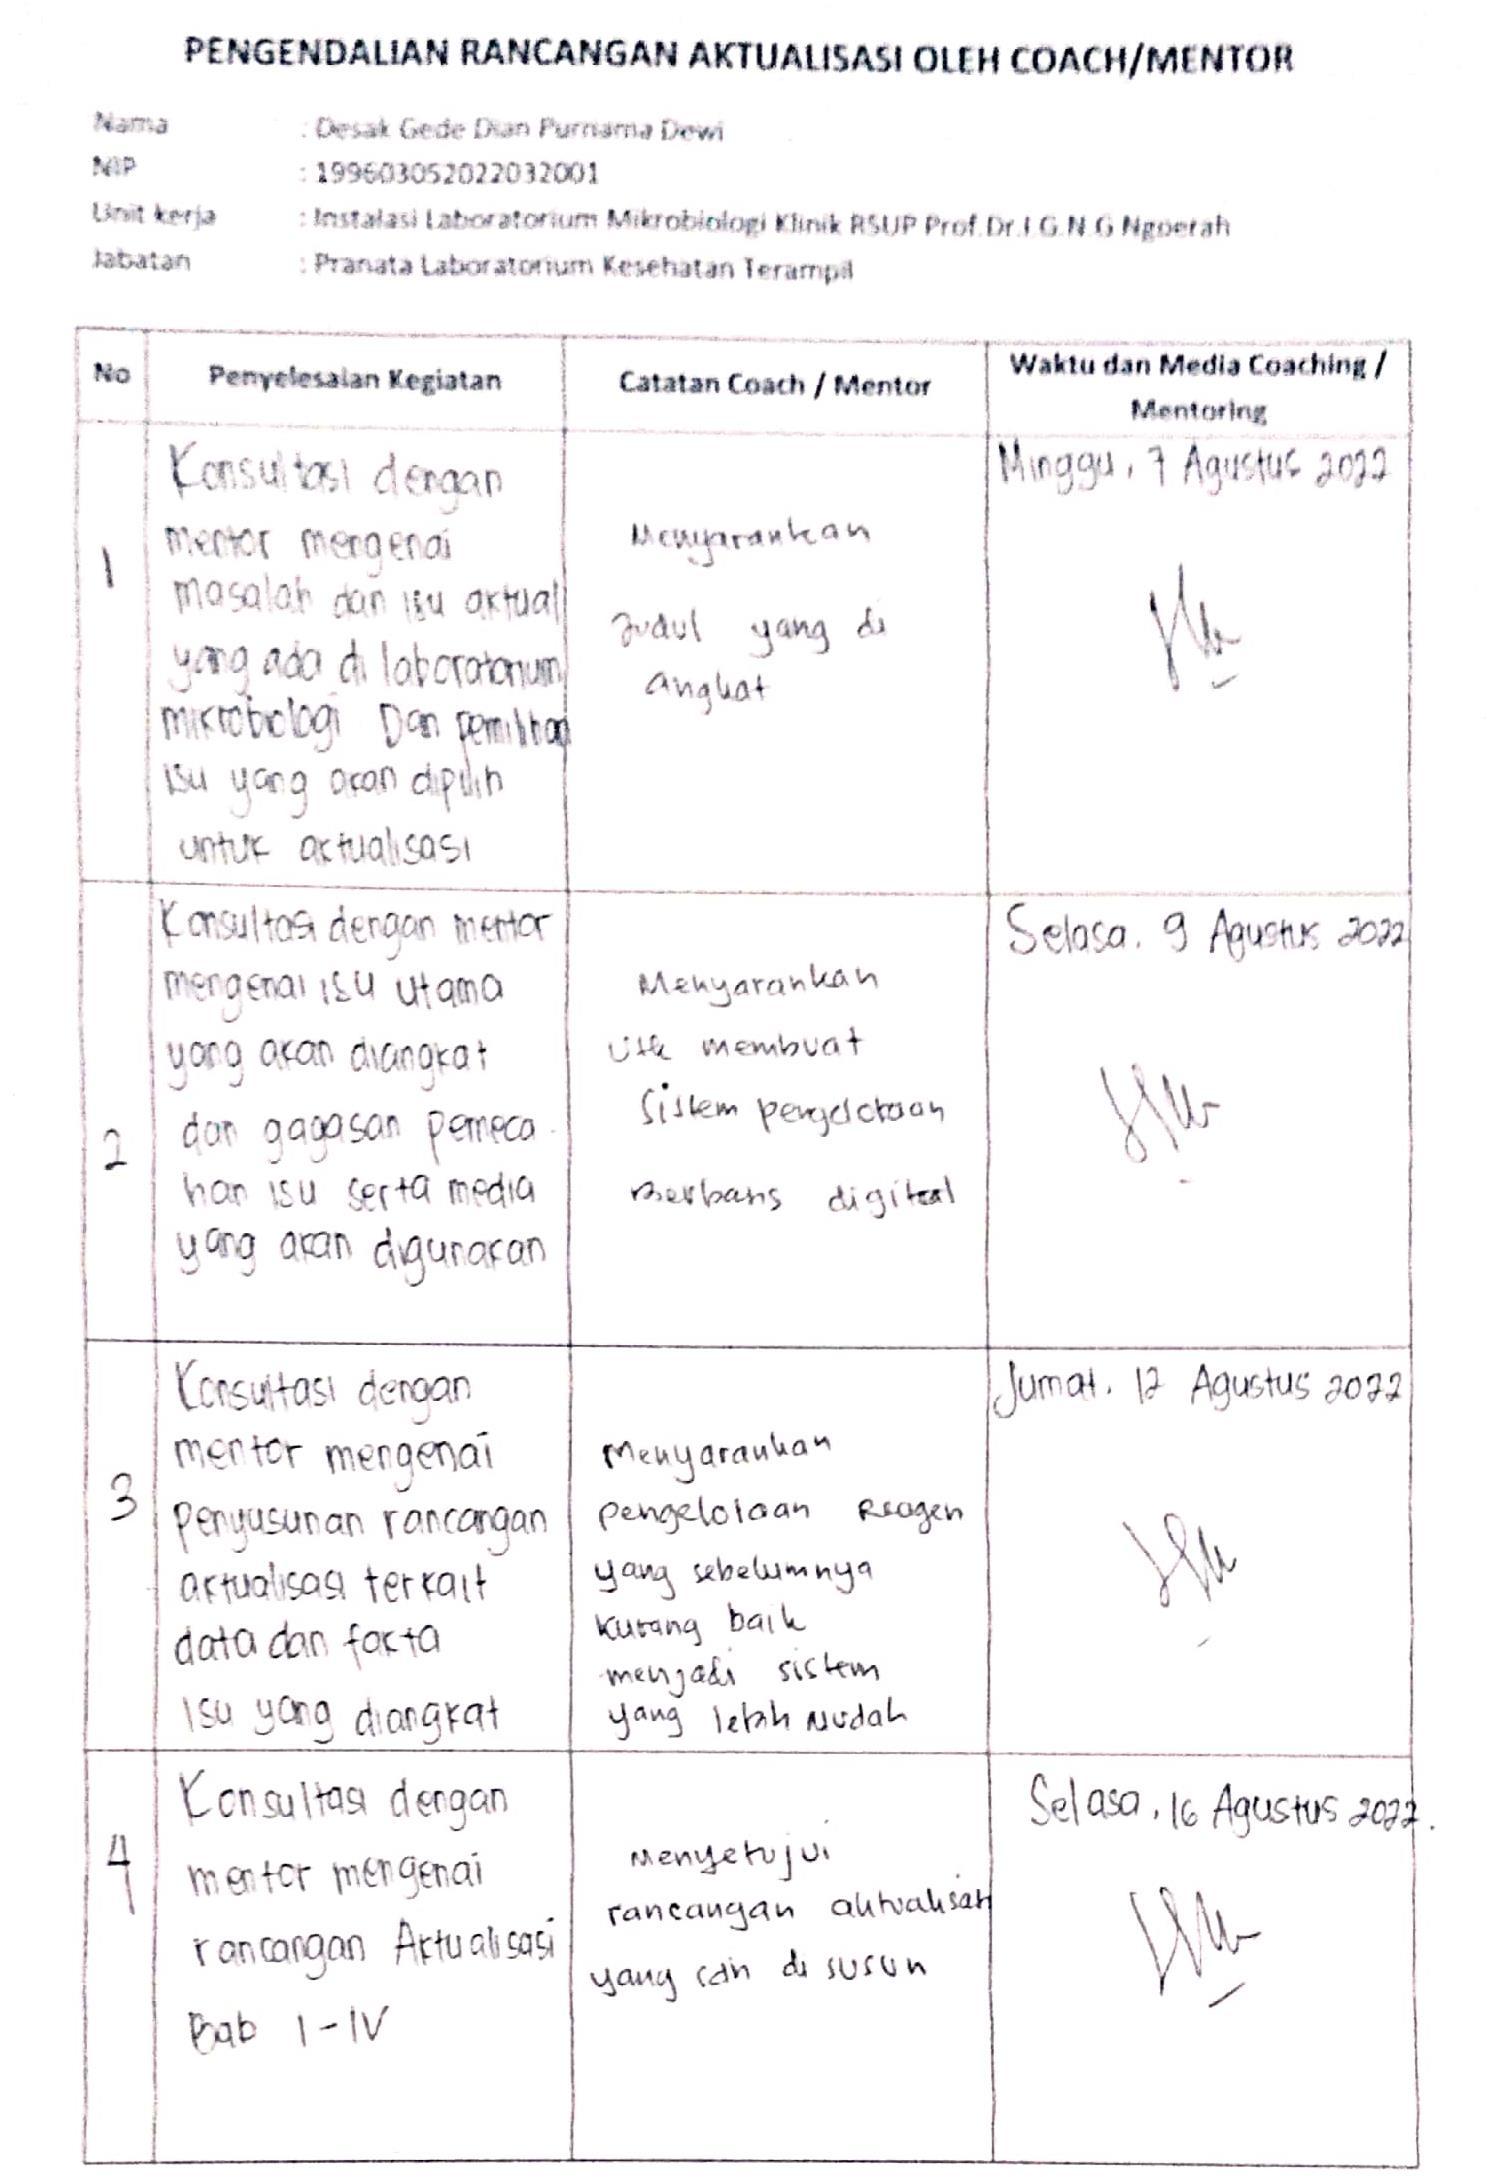 PENGENDALIAN RANCANGAN AKTUALISASI OLEH COACH/MENTOR
Nama : Desak Gede Dian Purnama Dewi
NIP : 199603052022032001
Unit kerja : Instalasi Laboratorium Mikrobiologi Klinik RSUP Prof.Dr.I.G.N.G Ngoerah
Jabatan : Pranata Laboratorium Kesehatan Terampil
No
Penyelesaian Kegiatan
Catatan Coach / Mentor
Waktu dan Media Coaching /
Mentoring
1
Konsultasi dengan
mentor mengenai
masalah dan isu aktual
yang ada di laboratorium
mikrobiologi Dan pemilihan
isu yang akan dipilih
untuk aktualisasi
Menyarankan
Judul yang di
angkat
Minggu, 7 Agustus 2022
2
Konsultasi dengan mentor
mengenai isu utama
yang akan diangkat
dan gagasan pemeca
han isu serta media
yang akan digunakan
Menyarankan
utk membuat
Sistem pengelolaan
Berbasis digital
Selasa, 9 Agustus 2022
3
Konsultasi dengan
mentor mengenai
penyusunan rancangan
aktualisasi terkait
data dan fakta
Isu yang diangkat
Menyarankan
pengelolaan Reagen
yang sebelumnya
Kurang baik
menjadi sistem
yang lebih Mudah
Jumat, 12 Agustus 2022
4
Konsultasi dengan
mentor mengenai
rancangan Aktualisasi
Bab I-IV
Menyetujui
rancangan aktualisasi
yang sdh di susun
Selasa, 16 Agustus 2022.